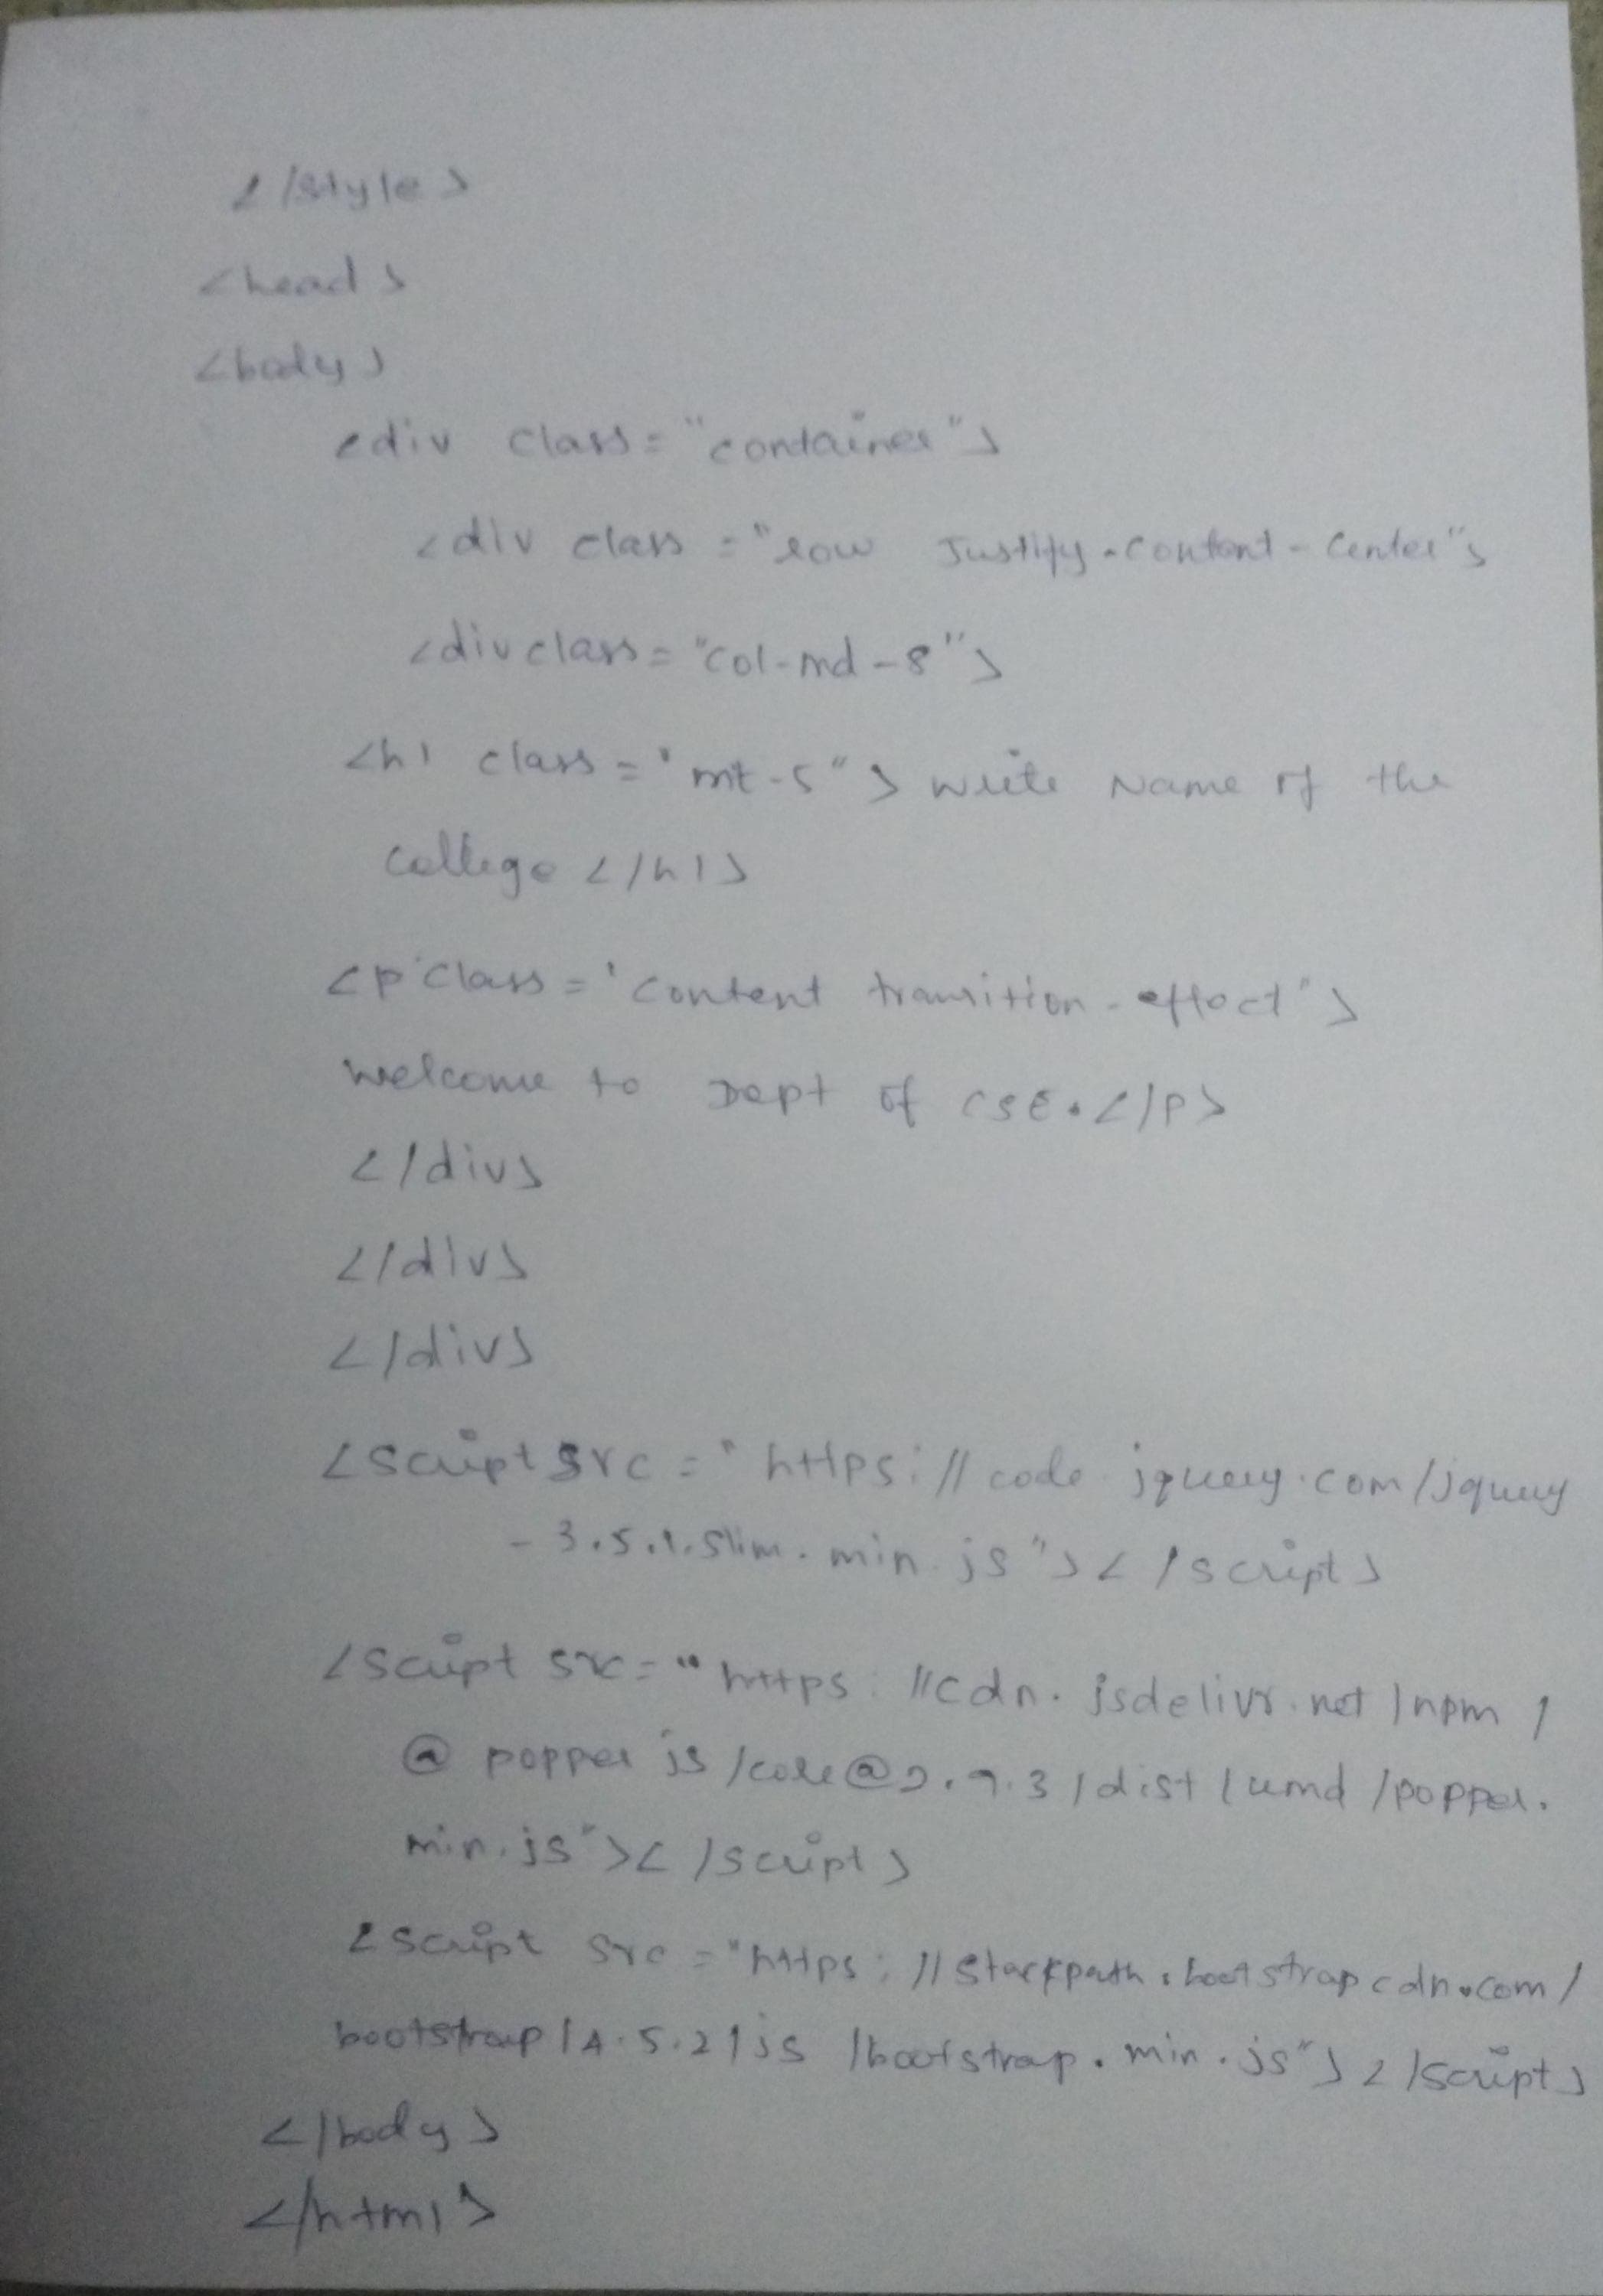 </style>
<head>
<body>
<div class="container">
<div class="row Justify-content-center">
<div class="col-md-8">
<h1 class='mt-5"> write Name of the
college </h1>
<p class='content transition-effect">
welcome to Dept of CSE.</p>
</div>
</div>
</div>
<script src="https://code.jquery.com/jquery
-3.5.1.slim.min.js"></script>
<script src="https://cdn.jsdelivr.net/npm/
@popper js/core@2.9.3/dist/umd/popper.
min.js"></script>
<script src="https://stackpath.bootstrapcdn.com/
bootstrap/4.5.2/js/bootstrap.min.js"></script>
</body>
</html>